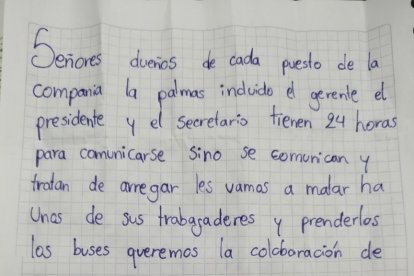 Señores dueños de cada puesto de la
compania la palmas incluido el gerente el
presidente y el secretario tienen 24 horas
para comunicarse sino se comunican y
tratan de arregar les vamos a matar ha
Unos de sus trabagaderes y prenderlos
los buses queremos la coloboración de